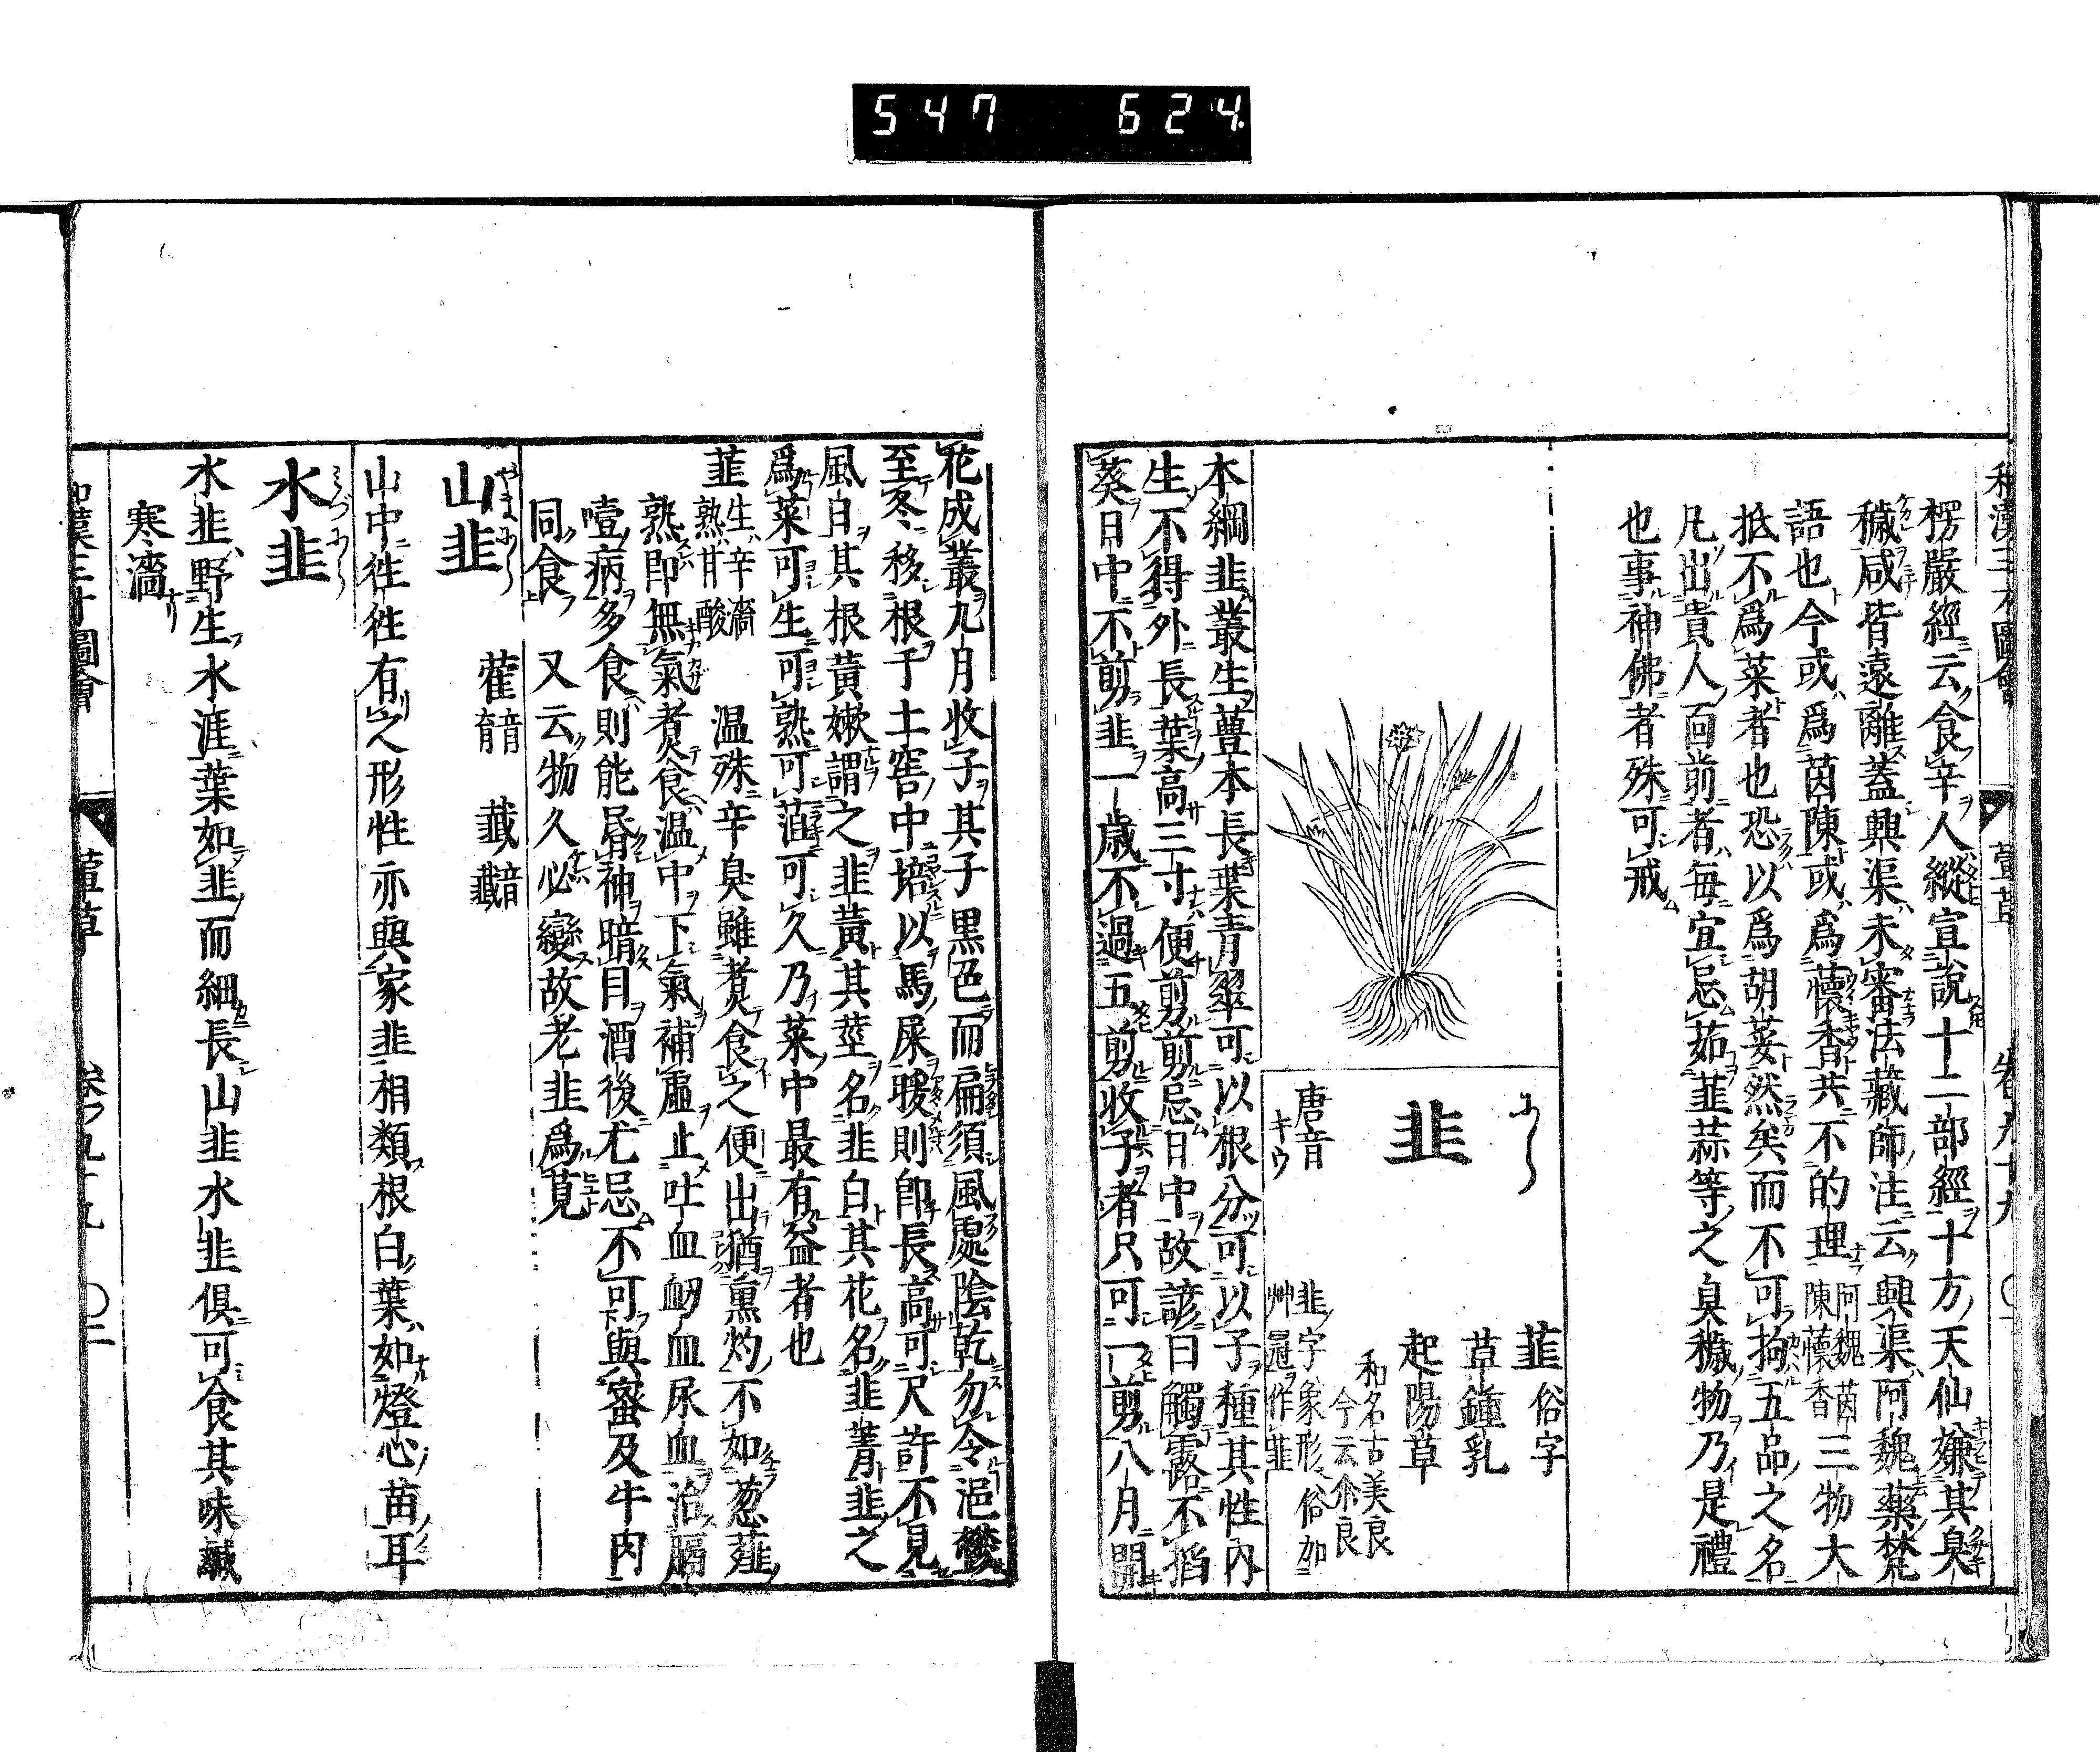 547 624
楞嚴經云食辛人縱宣說十二部經十方天仙嫌其臭
穢咸皆遠離蓋興渠未審法藏師注云興渠阿魏藥梵
語也今或爲茵陳或爲蘹香共不的理阿魏茵陳蘹香三物大
抵不爲菜者也恐以爲胡荽然矣而不可拘五品之名
凡出貴人面前者毎宜忌茹韮蒜等之臭穢物乃是禮
也事神佛者殊可戒
にら
韭
唐音
キウ
韮俗字
草鍾乳
起陽草
和名古美良
今云尒良
韭字象形俗加
艸冠作韮
本綱韭叢生豊本長葉青翠可以根分可以子種其性内
生不得外長葉高三寸便剪剪忌日中故諺曰觸露不掐
葵日中不剪韭一歳不過五剪收子者只可一剪八月開
花成叢九月收子其子黒色而扁須風處陰乾勿令浥鬱
至冬移根于土窖中培以馬屎暖則卽長高可尺許不見
風日其根黄嫰謂之韭黄其莖名韭白其花名韭菁韭之
爲菜可生可熟可菹可久乃菜中最有益者也
韮生辛濇熟甘酸 温殊辛臭雖煑食之便出猶熏灼不如葱薤
熟卽無氣煑食温中下氣補虛止吐血衂血尿血治膈
噎病多食則能昏神暗目酒後尤忌不可與蜜及牛肉
同食 又云物久必變故老韭爲莧
やまにら
山韭
藿音育 韱音韱
山中徃徃有之形性亦與家韭相類根白葉如燈心苗耳
みづにら
水韭
水韭野生水涯葉如韭而細長山韭水韭俱可食其味鹹
寒濇
和漢三才圖會 葷草 卷ノ九十九 〇二